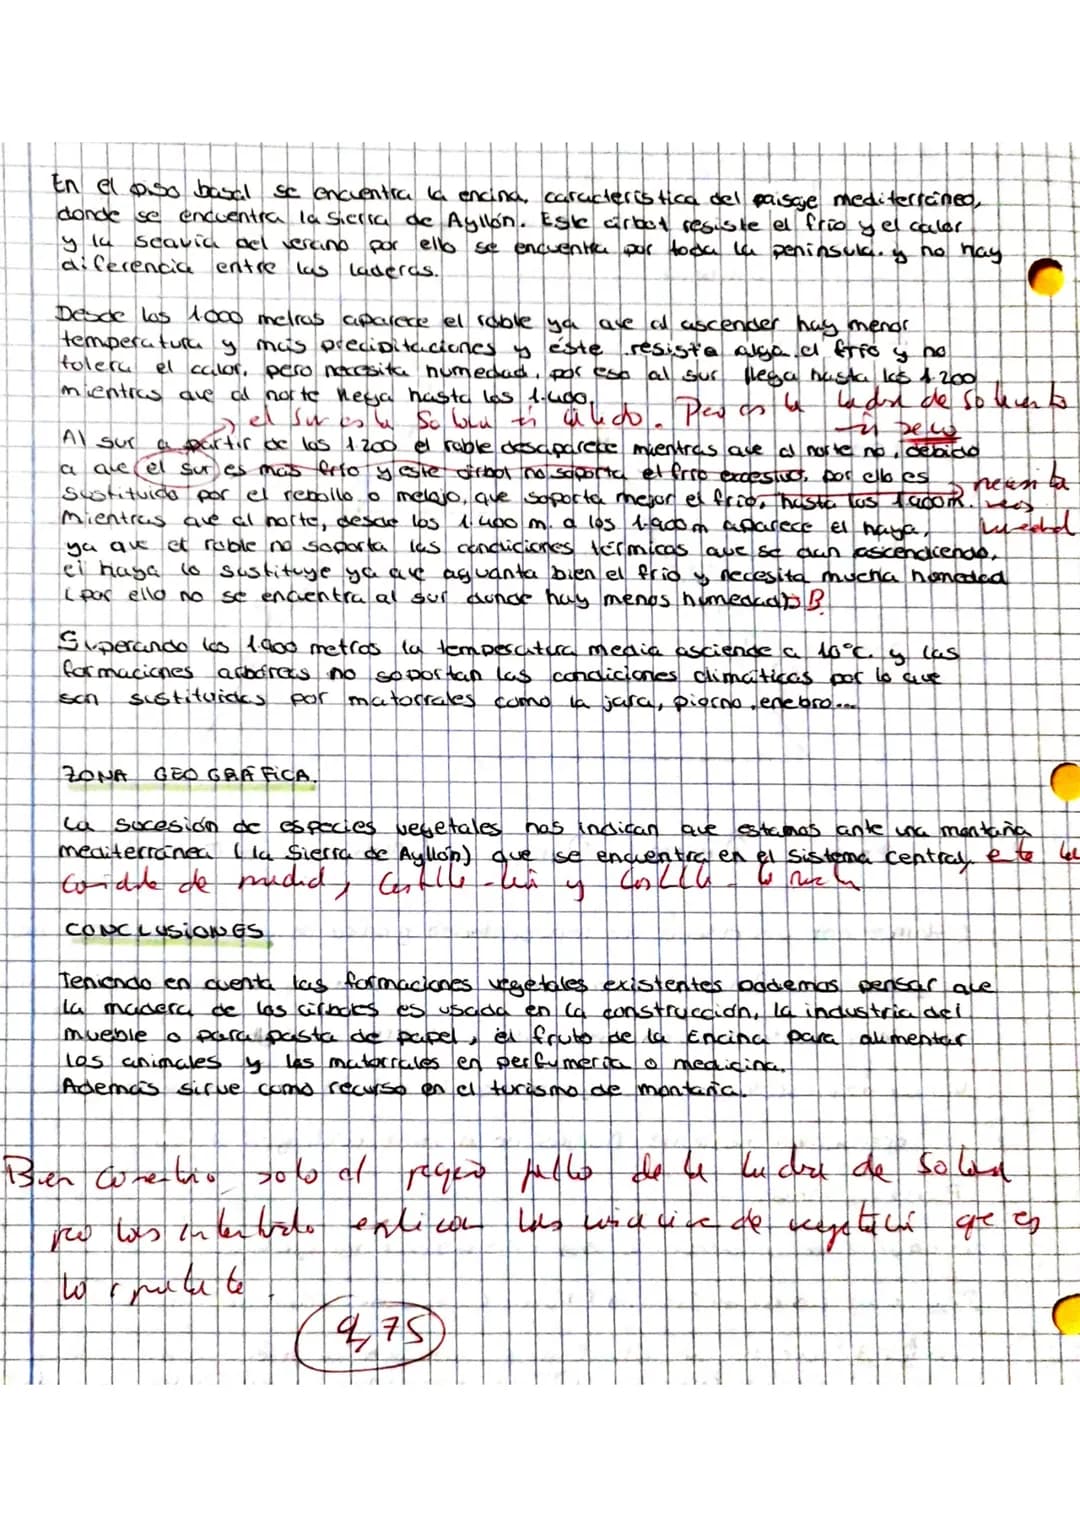 En el piso basal se encuentra la encina, característica del paisaje mediterráneo,
donde se encuentra la Sierra de Ayllón. Este árbol resiste el frío y el calor
y la seavia del verano por ello se encuentra por toda la península. y no hay
diferencia entre las laderas.
Desde los 1.000 metros aparece el roble ya que al ascender hay menor
temperatura y más precipitaciones y éste resiste algo el frío y no
tolera el calor, pero necesita humedad, por eso al sur llega hasta los 1.200
mientras que al norte llega hasta los 1.400.
el sur es la Solana + cálido. Pero es la ladera de Solavento
+ seco
Al sur a partir de los 1.200 el roble desaparece mientras que al norte no, debido
a que el sur es más frío y este árbol no soporta el frío excesivo, por ello es
necesita
sustituido por el rebollo o melojo, que soporta mejor el frío, hasta los 1.900m.
menos
mientras que al norte, desde los 1.400 m. a los 1.900m aparece el haya,
humedad
ya que el roble no soporta las condiciones térmicas que se dan ascendiendo,
el haya lo sustituye ya que aguanta bien el frío y necesita mucha homedad
(por ello no se encuentra al sur donde hay menos humedad) B
Superando los 1.900 metros la temperatura media asciende a 10°C. y las
formaciones arbóreas no soportan las condiciones climáticas por lo que
son sustituidas por matorrales como la jara, piorno, enebro...
ZONA GEOGRÁFICA.
La sucesión de especies vegetales nos indican que estamos ante una montaña
mediterránea (la Sierra de Ayllón) que se encuentra en el sistema central, entre la
Comunidad de Madrid, Castilla-León y Castilla-la Mancha
CONCLUSIONES
Teniendo en cuenta las formaciones vegetales existentes podemos pensar que
la madera de los árboles es usada en la construcción, la industria del
mueble o para pasta de papel, el fruto de la Encina para alimentar
los animales y los matorrales en perfumería o medicina.
Además sirve como recurso en el turismo de montaña.
Bien solo el pequeño fallo de la ladera de Solana
pero has intentado explicar las de vegetación que es
lo importante.
9,75